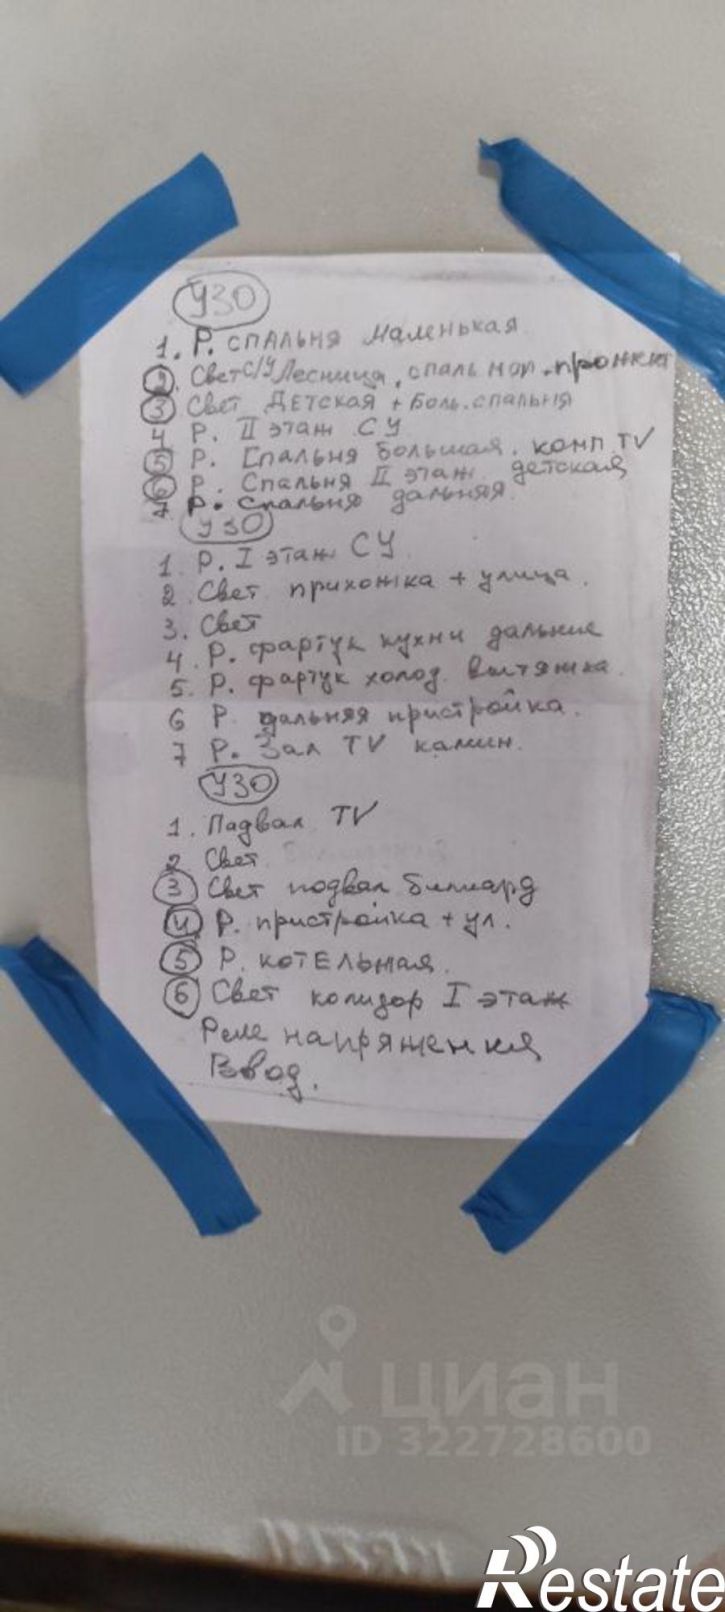 УЗО
1. Р. спальня маленькая
2. Свет С/У Лесница, спаль мал.
3 Свет Детская + Боль. спальня
4 Р. II этаж СУ
5 Р. Спальня большая. комп. TV
6 Р. Спальня II этаж детская
7 Р. Спальня дальняя.
УЗО
1. Р. I этаж СУ
2. Свет прихожка + улица.
3. Свет
4. Р. фартук кухни дальние
5. Р. фартук холод. вытяжка.
6 Р дальняя пристройка.
7 Р. Зал TV камин.
УЗО
1. Падвал TV
2 Свет.
3 Свет подвал билиард
4 Р. пристройка + ул.
5 Р. котельная.
6 Свет колидор I этаж
Реле напряжения
Ввод.
циан
ID 322728600
Restate